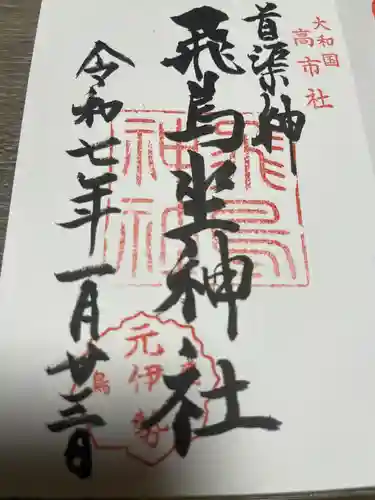 大和国
高市社
首渠神
飛鳥坐神社
令和七年一月廿三日
飛鳥
神社
元伊勢